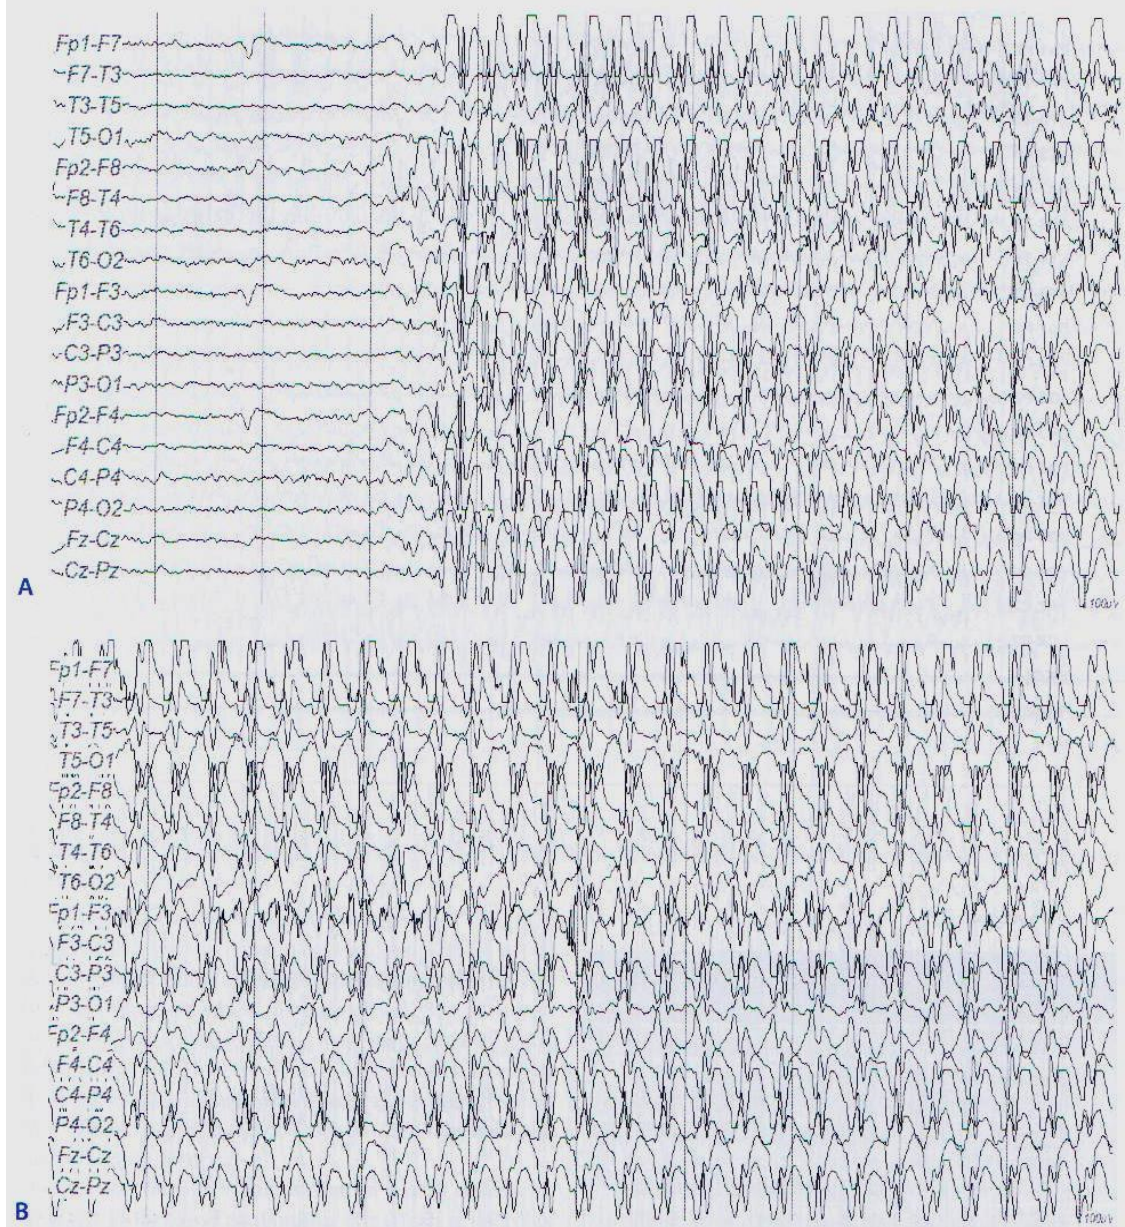 Fp1-F7
F7-T3
T3-T5
T5-O1
Fp2-F8
F8-T4
T4-T6
T6-O2
Fp1-F3
F3-C3
C3-P3
P3-O1
Fp2-F4
F4-C4
C4-P4
P4-O2
Fz-Cz
Cz-Pz
A
100uV
Fp1-F7
F7-T3
T3-T5
T5-O1
Fp2-F8
F8-T4
T4-T6
T6-O2
Fp1-F3
F3-C3
C3-P3
P3-O1
Fp2-F4
F4-C4
C4-P4
P4-O2
Fz-Cz
Cz-Pz
B
100uV